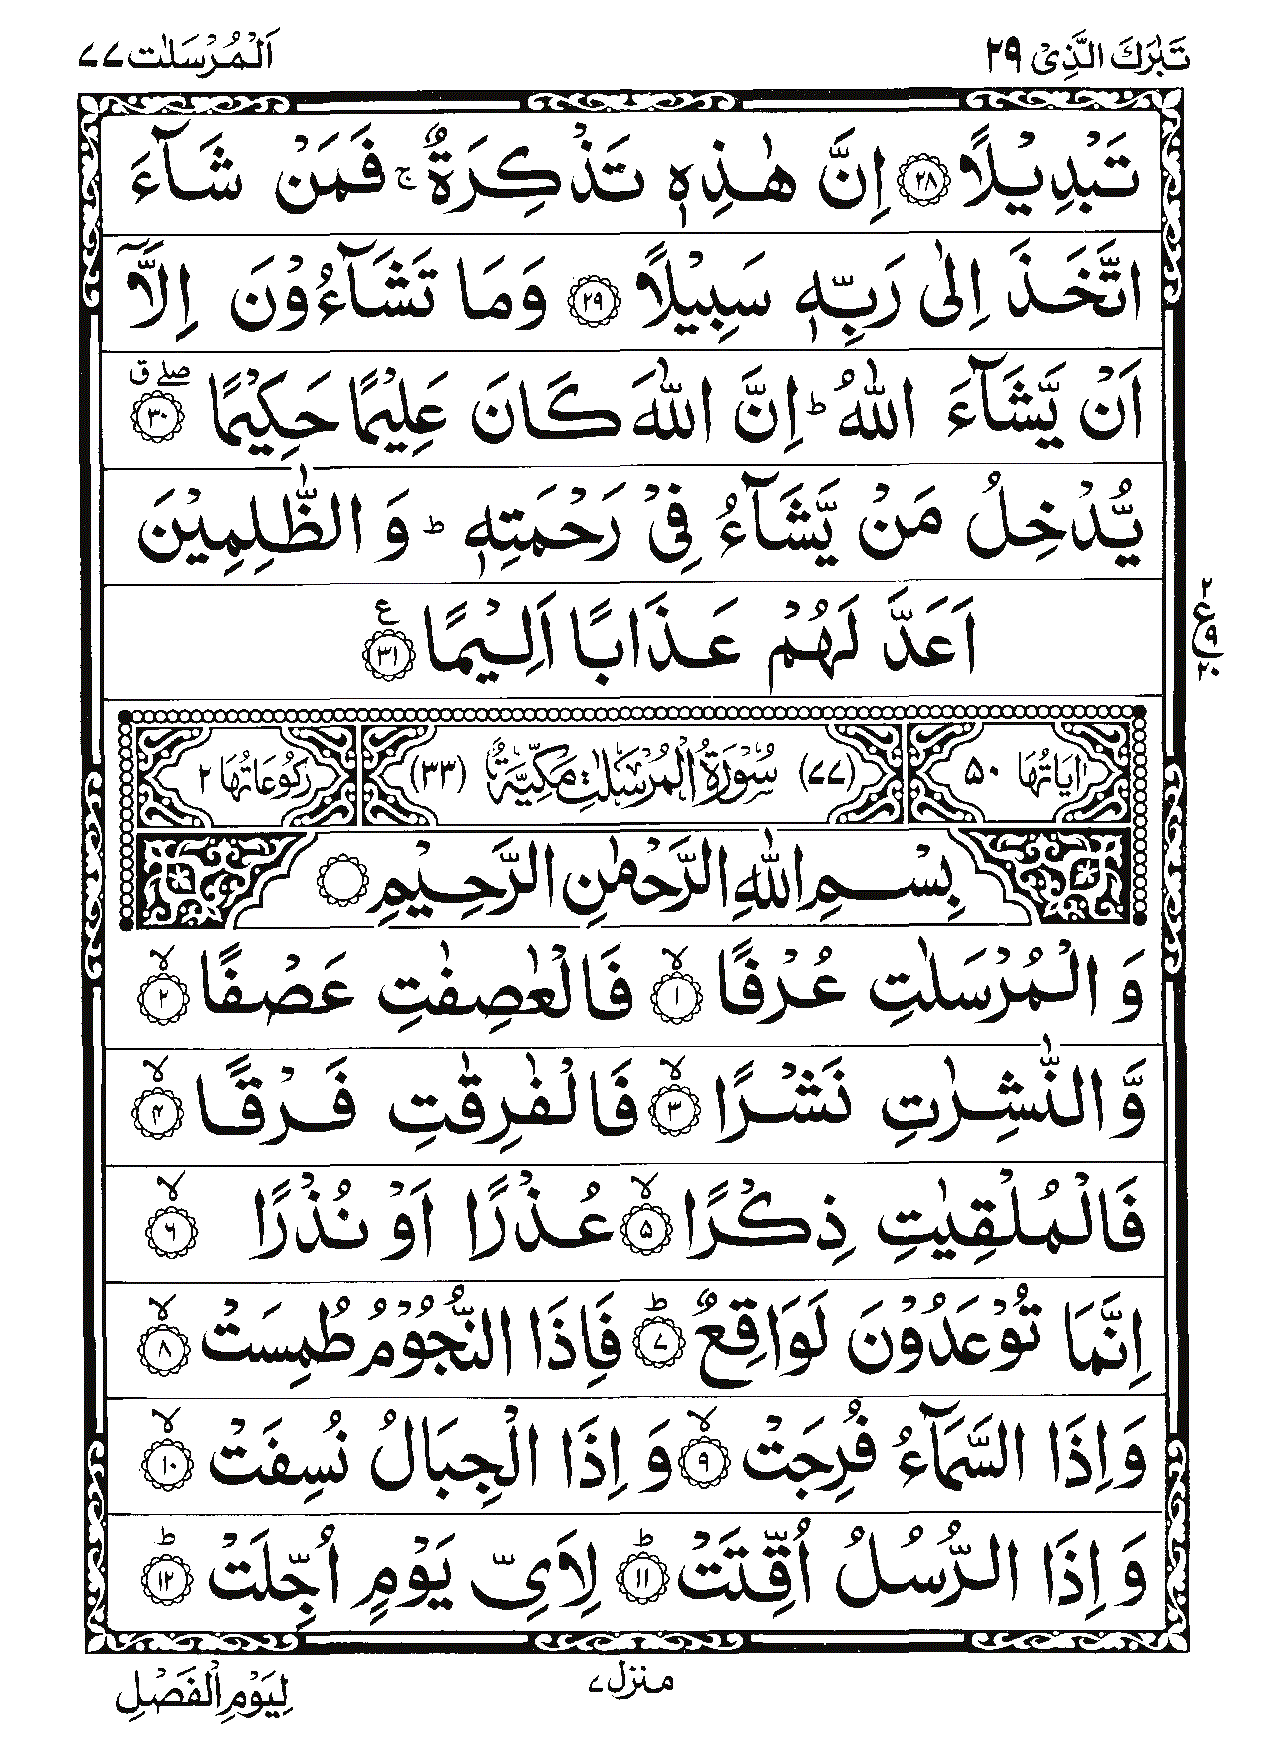 تَبٰرَكَ الَّذِیْ ٢٩
اَلْمُرْسَلٰت ٧٧
تَبْدِيْلًا ﴿٢٨﴾ اِنَّ هٰذِهٖ تَذْكِرَةٌ ۚ فَمَنْ شَآءَ
اتَّخَذَ اِلٰى رَبِّهٖ سَبِيْلًا ﴿٢٩﴾ وَمَا تَشَآءُوْنَ اِلَّآ
اَنْ يَّشَآءَ اللّٰهُ ؕ اِنَّ اللّٰهَ كَانَ عَلِيْمًا حَكِيْمًا ﴿٣٠﴾ صلے ق
يُّدْخِلُ مَنْ يَّشَآءُ فِیْ رَحْمَتِهٖ ؕ وَ الظّٰلِمِيْنَ
اَعَدَّ لَهُمْ عَذَابًا اَلِيْمًا ﴿٣١﴾ ع
٢
ع ٩
٢٠
اٰيَاتُهَا ٥٠
(٧٧) سُوْرَةُ الْمُرْسَلٰتِ مَكِّيَّةٌ (٣٣)
رُكُوْعَاتُهَا ٢
بِسْمِ اللّٰهِ الرَّحْمٰنِ الرَّحِيْمِ
وَ الْمُرْسَلٰتِ عُرْفًا ۙ ﴿١﴾ فَالْعٰصِفٰتِ عَصْفًا ۙ ﴿٢﴾
وَّ النّٰشِرٰتِ نَشْرًا ۙ ﴿٣﴾ فَالْفٰرِقٰتِ فَرْقًا ۙ ﴿٤﴾
فَالْمُلْقِيٰتِ ذِكْرًا ۙ ﴿٥﴾ عُذْرًا اَوْ نُذْرًا ۙ ﴿٦﴾
اِنَّمَا تُوْعَدُوْنَ لَوَاقِعٌ ؕ ﴿٧﴾ فَاِذَا النُّجُوْمُ طُمِسَتْ ۙ ﴿٨﴾
وَاِذَا السَّمَآءُ فُرِجَتْ ۙ ﴿٩﴾ وَ اِذَا الْجِبَالُ نُسِفَتْ ۙ ﴿١٠﴾
وَ اِذَا الرُّسُلُ اُقِّتَتْ ؕ ﴿١١﴾ لِاَیِّ يَوْمٍ اُجِّلَتْ ؕ ﴿١٢﴾
منزل ٧
لِيَوْمِ الْفَصْلِ